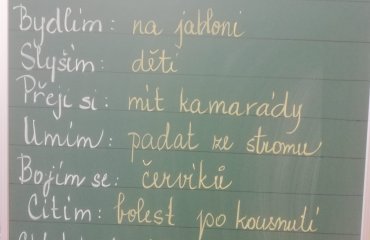 Bydlím: na jabloni
Slyším: děti
Přeji si: mít kamarády
Umím: padat ze stromu
Bojím se: červíků
Cítím: bolest po kousnutí